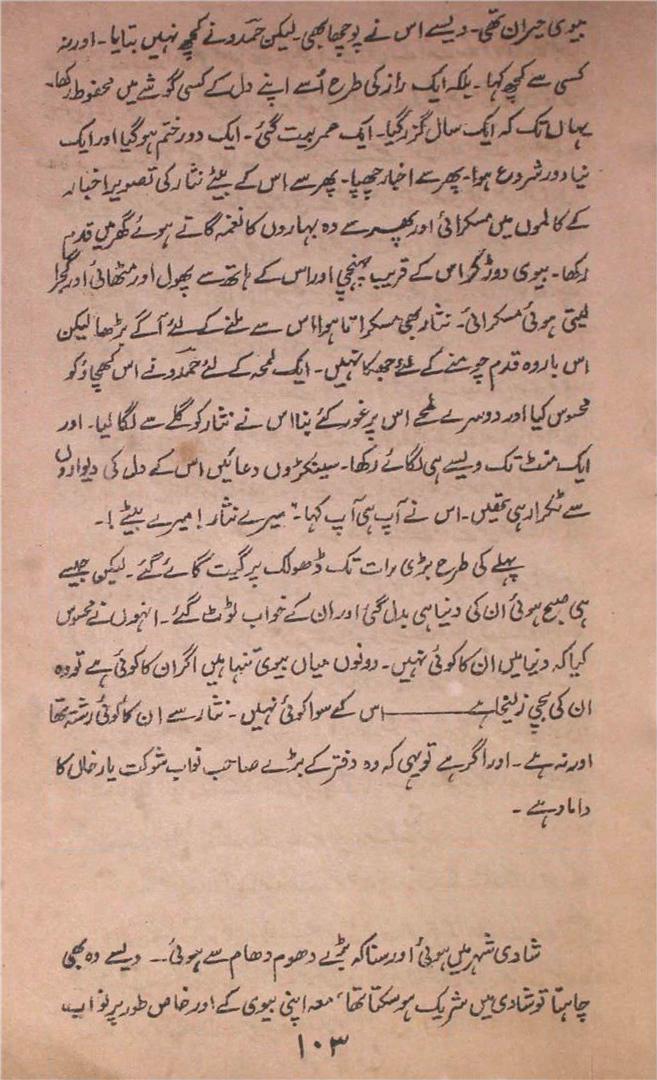 بیوی حیران تھی۔ ویسے اس نے پوچھا بھی۔ لیکن حمّدو نے کچھ نہیں بتایا۔ اور نہ
کسی سے کچھ کہا۔ بلکہ ایک راز کی طرح اُسے اپنے دل کے کسی گوشے میں محفوظ رکھا۔
یہاں تک کہ ایک سال گزر گیا۔ ایک عمر بیت گئی۔ ایک دور ختم ہو گیا اور ایک
نیا دور شروع ہوا۔ پھر سے اخبار چھپا۔ پھر سے اس کے بیٹے نثار کی تصویر اخبار
کے کالموں میں مسکرائی اور پھر سے وہ بہاروں کا نغمہ گاتے ہوئے گھر میں قدم
رکھا۔ بیوی دوڑ کر اس کے قریب پہنچی اور اس کے ہاتھ سے پھول اور مٹھائی اور گجرا
لیتی ہوئی مسکرائی۔ نثار بھی مسکراتا ہوا اس سے ملنے کے لئے آگے بڑھا لیکن
اس بار وہ قدم چومنے کے لئے جھکا نہیں۔ ایک لمحہ کے لئے حمّدو نے اس کھچاؤ کو
محسوس کیا اور دوسرے لمحے اس پر غور کئے بنا اس نے نثار کو گلے سے لگا لیا۔ اور
ایک منٹ تک ویسے ہی لگائے رکھا۔ سینکڑوں دعائیں اس کے دل کی دیواروں
سے ٹکرا رہی تھیں۔ اس نے آپ ہی آپ کہا۔ "میرے نثار! میرے بیٹے!۔
پہلے کی طرح بڑی رات تک ڈھولک پر گیت گائے گئے۔ لیکن جیسے
ہی صبح ہوئی ان کی دنیا ہی بدل گئی اور ان کے خواب ٹوٹ گئے۔ انہوں نے محسوس
کیا کہ دنیا میں ان کا کوئی نہیں۔ دونوں میاں بیوی تنہا ہیں اگر ان کا کوئی ہے تو وہ
ان کی بچی زلیخا ہے ——— اس کے سوا کوئی نہیں۔ نثار سے ان کا کوئی رشتہ تھا
اور نہ ہے۔ اور اگر ہے تو یہی کہ وہ دفتر کے بڑے صاحب نواب شوکت یار خاں کا
داماد ہے۔
شادی شہر میں ہوئی اور سنا کہ بڑے دھوم دھام سے ہوئی۔۔ ویسے وہ بھی
چاہتا تو شادی میں شریک ہو سکتا تھا، معہ اپنی بیوی کے اور خاص طور پر نواب
۱۰۳